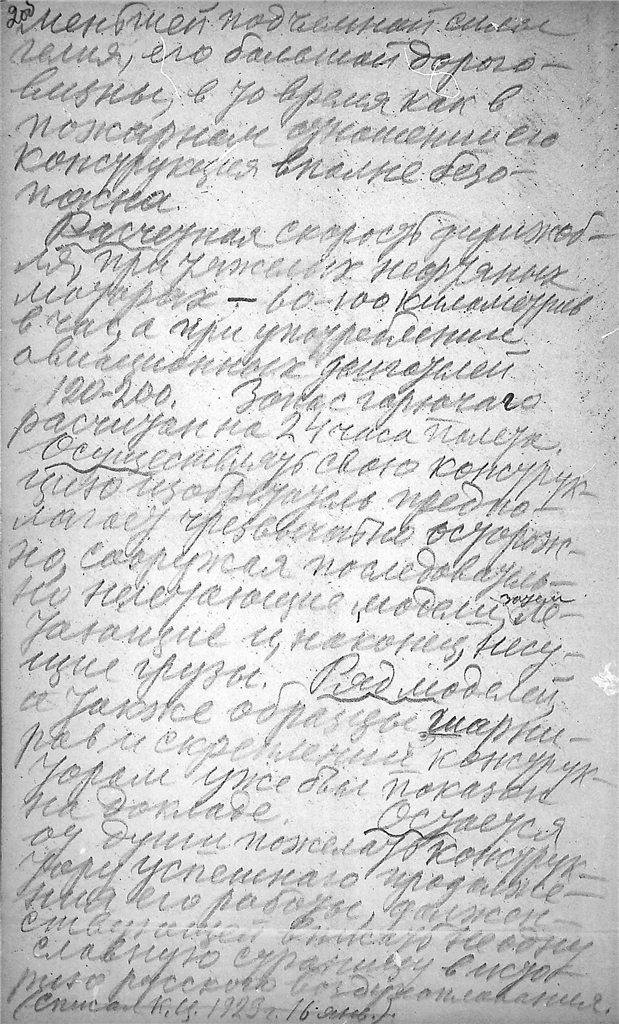 20д
меньшей подъемной силы
гелия, его большой дорого-
визны, в то время как в
пожарном отношении его
конструкция вполне безо-
пасна.
Расчетная скорость дирижаб-
ля, при тяжелых нефтяных
моторах — 60-100 километров
в час, а при употреблении
авиационных двигателей
120-200. Запас горючаго
расчитан на 24 часа полета.
Осуществлять свою конструк-
цию изобретатель предпо-
лагает чрезвычайно осторож-
но, сооружая последователь-
но нелетающие модели, затем ле-
тающие и, наконец, несу-
щие грузы. Ряд моделей,
а также образцы шарни-
ров и скреплений конструк-
тором уже был показан
на докладе. Остается
от души пожелать конструк-
тору успешнаго продолже-
ния его работы, должен-
ствующей вписать не одну
славную страницу в исто-
рию русского воздухоплавания.
(Списал К.Ц. 1923 г. 16 янв.).